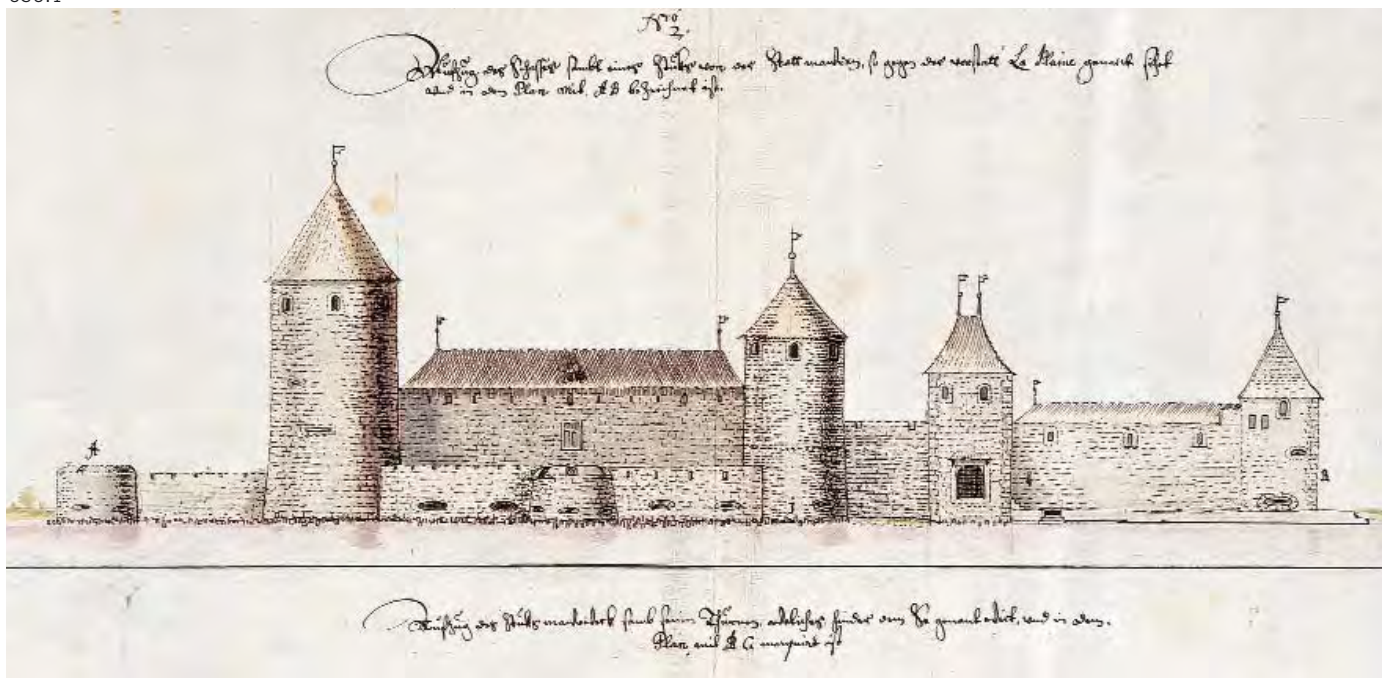 No
2.
Auffzug des Schlosses sambt eines Stuks von der Statt mauren, so gegen der vorstatt La Plaine genannt sicht
und in dem Plan mit A B bezeichnet ist.
A
B
Auffzug des Stuks mauerwerk samb seinen Thürnen, welches hinder dem So genannt, und in dem
Plan mit B C marquirt ist